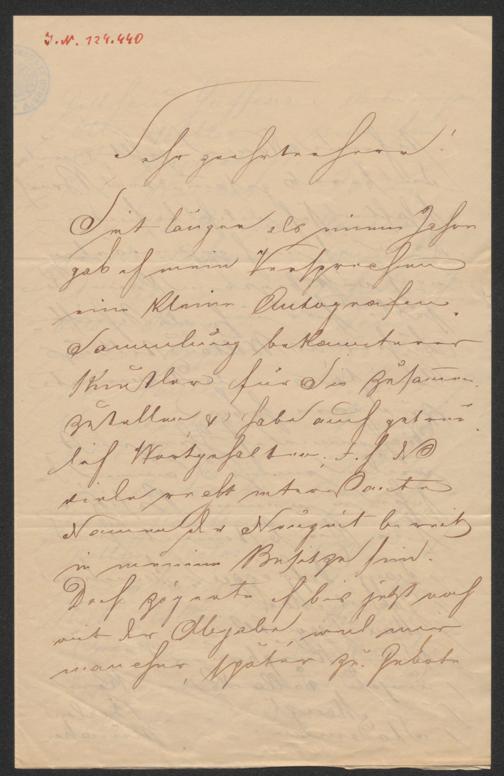 J.N. 124.440
Sehr geehrter Herr!
Seit länger als einem Jahre
gab ich mein Versprechen
eine kleine Autografen
Sammlung bekannterer
Künstler für Sie zusammen
zustellen & habe auch getreu
lich Wortgehalten, d. h. das
viele recht interessante
Namen der Neuzeit bereits
in meinem Besitze sind.
Doch zögerte ich bis jetzt noch
mit der Abgabe, weil mir
mancher, später zu Gebote